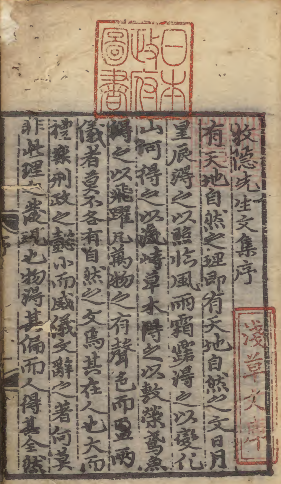 日本
政府
圖書
牧隱先生文集序
有天地自然之理即有天地自然之文日月
星辰得之以照臨風雨霜露得之以變化
山河得之以流峙草木得之以敷榮鳶魚
得之以飛躍凡萬物之有聲色而盈兩
儀者莫不各有自然之文焉其在人也大而
禮樂刑政之懿小而威儀文辭之著何莫
非此理之發現也物得其偏而人得其全然
淺草文庫